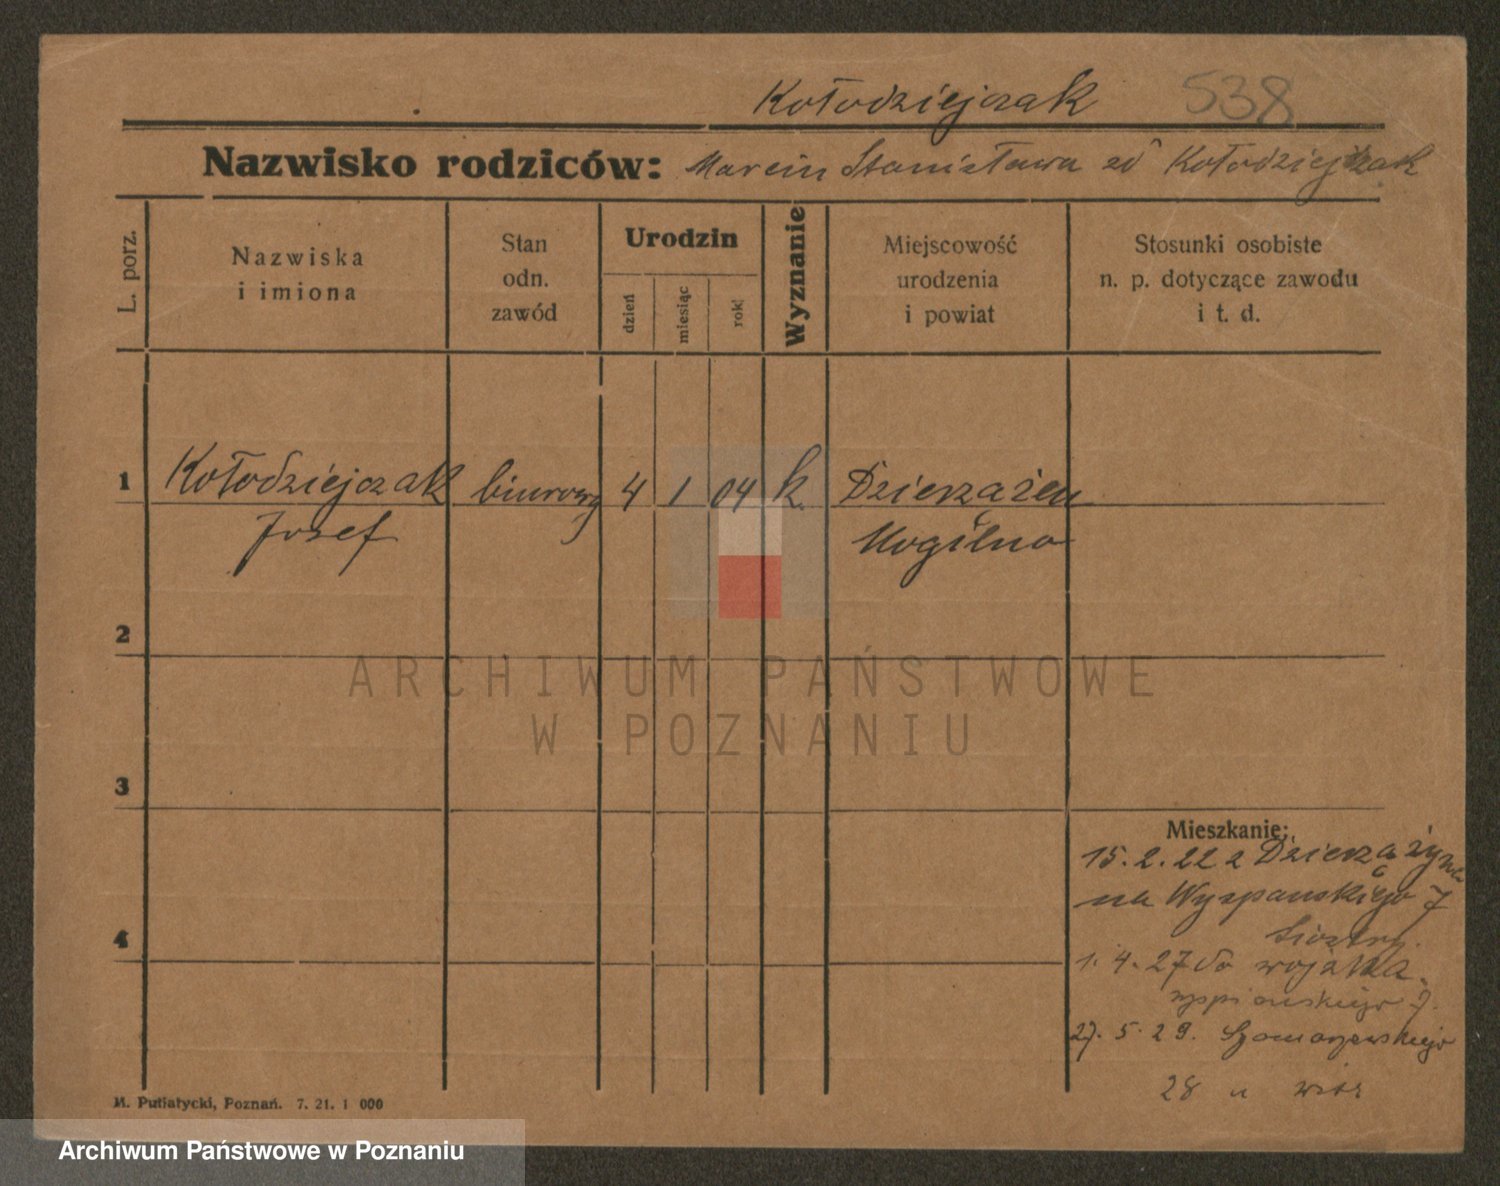 Kołodziejczak 538
Nazwisko rodziców: Marcin Stanisława zd Kołodziejczak
L. porz.
Nazwiska
i imiona
Stan
odn.
zawód
Urodzin
dzień
miesiąc
rok
Wyznanie
Miejscowość
urodzenia
i powiat
Stosunki osobiste
n. p. dotyczące zawodu
i t. d.
1 Kołodziejczak biurowy 4 1 04 k. Dzierzążen
Josef Mogilno
2
ARCHIWUM PAŃSTWOWE
W POZNANIU
3
Mieszkanie:
15.2.22 z Dzierzążyna
na Wyspańskiego 7
Siostry.
4
1.4.27 do wojska
wyspiańskiego 7.
27.5.29. Szamarzewskiego
28 u
M. Putiatycki, Poznań. 7. 21. 1 000
Archiwum Państwowe w Poznaniu